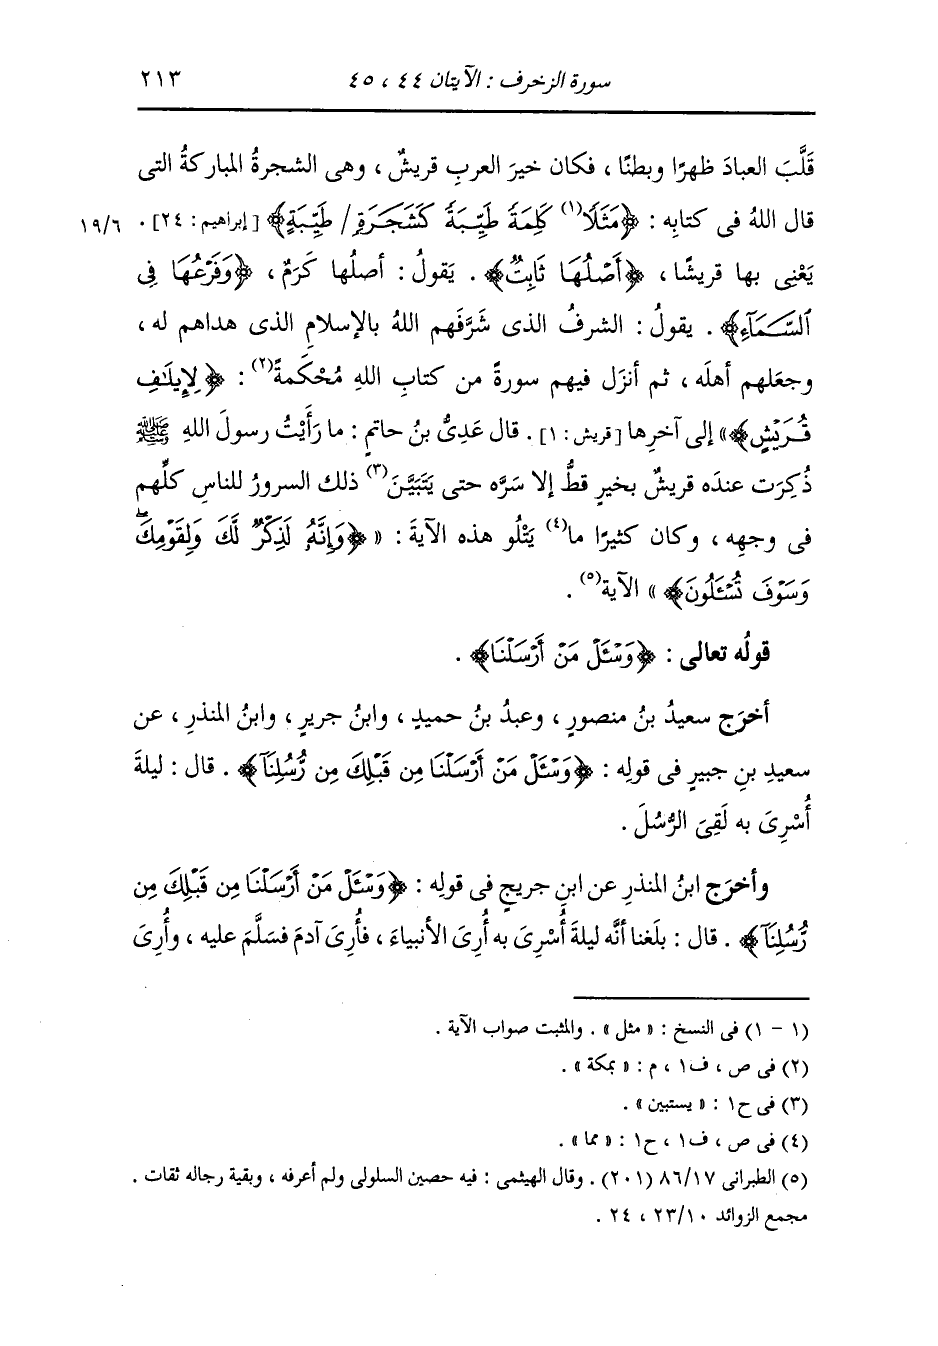 سورة الزخرف : الآيتان ٤٤ ، ٤٥ ٢١٣
قَلَّبَ العبادَ ظهرًا وبطنًا ، فكان خيرَ العربِ قريشٌ ، وهى الشجرةُ المباركةُ التى
قال اللهُ فى كتابِه : ﴿مَثَلًا(١) كَلِمَةً طَيِّبَةً كَشَجَرَةٍ / طَيِّبَةٍ﴾ [إبراهيم : ٢٤] . ١٩/٦
يَعْنِى بها قريشًا ، ﴿أَصْلُهَا ثَابِتٌ﴾ . يَقولُ : أصلُها كَرَمٌ ، ﴿وَفَرْعُهَا فِى
ٱلسَّمَآءِ﴾ . يقولُ : الشرفُ الذى شَرَّفَهم اللهُ بالإسلامِ الذى هداهم له ،
وجعَلهم أهلَه ، ثم أنزَل فيهم سورةً من كتابِ اللهِ مُحْكَمةً(٢) : ﴿لِإِيلَٰفِ
قُرَيْشٍ﴾» إلى آخرِها [قريش : ١] . قال عَدِىُّ بنُ حاتمٍ : ما رَأَيْتُ رسولَ اللهِ ﷺ
ذُكِرَت عندَه قريشٌ بخيرٍ قطُّ إلا سَرَّه حتى يَتَبَيَّنَ(٣) ذلك السرورُ للناسِ كلِّهم
فى وجهِه ، وكان كثيرًا ما(٤) يَتْلُو هذه الآيةَ : « ﴿وَإِنَّهُۥ لَذِكْرٌ لَّكَ وَلِقَوْمِكَۖ
وَسَوْفَ تُسْـَٔلُونَ﴾ » الآية(٥) .
قولُه تعالى : ﴿وَسْـَٔلْ مَنْ أَرْسَلْنَا﴾ .
أخرَج سعيدُ بنُ منصورٍ ، وعبدُ بنُ حميدٍ ، وابنُ جريرٍ ، وابنُ المنذرِ ، عن
سعيدِ بنِ جبيرٍ فى قولِه : ﴿وَسْـَٔلْ مَنْ أَرْسَلْنَا مِن قَبْلِكَ مِن رُّسُلِنَآ﴾ . قال : ليلةَ
أُسْرِىَ به لَقِىَ الرُّسُلَ .
وأخرَج ابنُ المنذرِ عن ابنِ جريجٍ فى قولِه : ﴿وَسْـَٔلْ مَنْ أَرْسَلْنَا مِن قَبْلِكَ مِن
رُّسُلِنَآ﴾ . قال : بلَغنا أنَّه ليلةَ أُسْرِىَ به أُرِىَ الأنبياءَ ، فأُرِىَ آدمَ فسَلَّمَ عليه ، وأُرِىَ
(١ - ١) فى النسخ : « مثل » . والمثبت صواب الآية .
(٢) فى ص ، ف١ ، م : « بمكة » .
(٣) فى ح١ : « يستبين » .
(٤) فى ص ، ف١ ، ح١ : « مما » .
(٥) الطبرانى ٨٦/١٧ (٢٠١) . وقال الهيثمى : فيه حصين السلولى ولم أعرفه ، وبقية رجاله ثقات .
مجمع الزوائد ٢٣/١٠ ، ٢٤ .